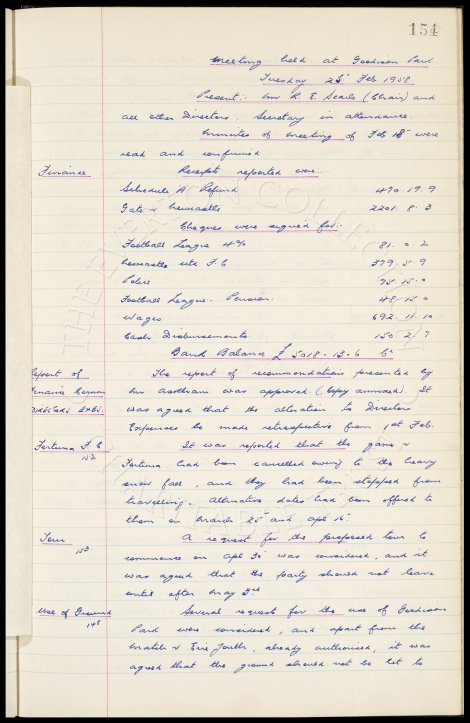 154
Meeting held at Goodison Park
Tuesday 25th Feb 1958
Present:- Mr R. E. Searle (Chair) and
all other Directors. Secretary in attendance.
Minutes of Meeting of Feb 18th were
read and confirmed
Finance Receipts reported were:-
Schedule A Refund 470.19.9
Gate v Newcastle 2201.8.3
Cheques were signed for:-
Football League 4% 81.0.2
Newcastle Utd F.C 379.5.9
Police 95.15.0
Football League. Pension. 48.15.0
Wages 692.11.10
Cash Disbursements. 150.2.7
Bank Balance £5018.13.6 Cr
Report of The report of recommendations presented by
Finance Comm Mr Askham was approved. (Copy annexed). It
DIRECTORS EXES. was agreed that the alteration to Directors
Expenses be made retrospective from 1st Feb.
Fortuna F.C It was reported that the game v
152 Fortuna had been cancelled owing to the heavy
snow fall, and they had been stopped from
travelling. Alternative dates had been offered to
them on March 25th and Apl 16.
Tour A request for the proposed tour to
153 commence on Apl 30th was considered, and it
was agreed that the party should not leave
until after May 3rd
Use of Ground Several request for the use of Goodison
148 Park were considered, and apart from the
Match v Eire Youth, already authorised, it was
agreed that the ground should not be let to
THE EVERTON COLLECTION